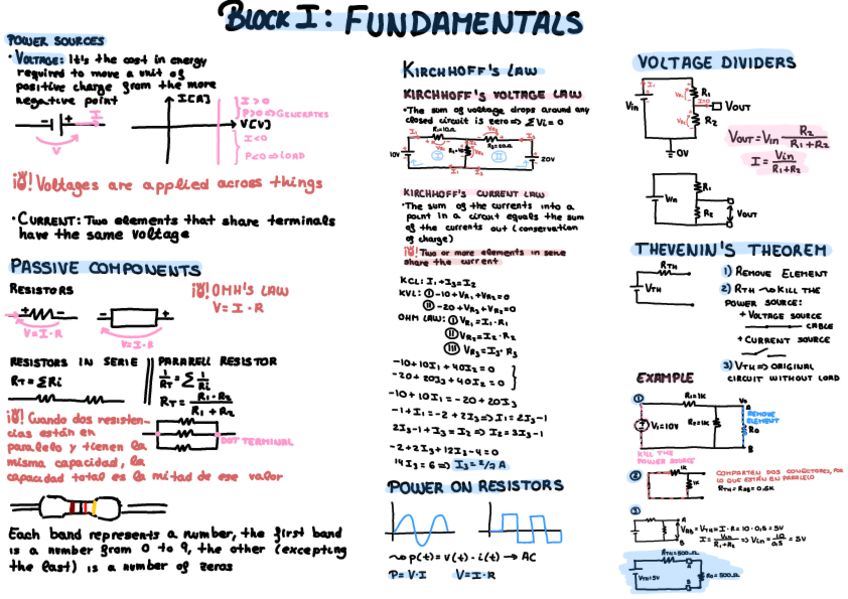 BLOCK I: FUNDAMENTALS
POWER SOURCES
· VOLTAGE: It's the cost in energy
required to move a unit of
positive charge from the more
negative point
I[A]
V[V]
I>0
P>0⇒GENERATES
I<0
P<0⇒LOAD
- +
I
V
¡! Voltages are applied across things
· CURRENT: Two elements that share terminals
have the same voltage
PASSIVE COMPONENTS
RESISTORS
¡! OMH'S LAW
V=I·R
+ -
V=I·R
- +
V=I·R
RESISTORS IN SERIE
RT=ΣRi
PARARELL RESISTOR
1/RT = Σ 1/Ri
RT = R1·R2 / R1+R2
¡! Cuando dos resisten-
cias están en
paralelo y tienen la
misma capacidad, la
capacidad total es la mitad de ese valor
DOT TERMINAL
Each band represents a number, the first band
is a number from 0 to 9, the other (excepting
the last) is a number of zeros
KIRCHHOFF'S LAW
KIRCHHOFF'S VOLTAGE LAW
· The sum of voltage drops around any
closed circuit is zero⇒ ΣVi=0
R1=10Ω
10V
20V
I
II
KIRCHHOFF'S CURRENT LAW
· The sum of the currents into a
point in a circuit equals the sum
of the currents out (conservation
of charge)
¡! Two or more elements in serie
share the current
KCL: I1+I3=I2
KVL: I -10+VR1+VR2=0
II -20+VR3+VR2=0
OHM LAW: I VR1=I1·R1
II VR2=I2·R2
III VR3=I3·R3
-10+10I1+40I2=0
-20+20I3+40I2=0
-10+10I1=-20+20I3
-1+I1=-2+2I3⇒I1=2I3-1
2I3-1+I3=I2⇒I2=3I3-1
-2+2I3+12I3-4=0
14I3=6⇒I3=3/7 A
POWER ON RESISTORS
p(t)=v(t)·i(t)→AC
P=V·I V=I·R
VOLTAGE DIVIDERS
I1
R1
Vin
I=0
VOUT
R2
0V
VOUT=Vin R2/R1+R2
I=Vin/R1+R2
R1
Vin
R2
VOUT
THEVENIN'S THEOREM
RTH
VTH
1) REMOVE ELEMENT
2) RTH KILL THE
POWER SOURCE:
+ VOLTAGE SOURCE
CABLE
+ CURRENT SOURCE
3) VTH⇒ORIGINAL
CIRCUIT WITHOUT LOAD
EXAMPLE
1
R1=1K
V1=10V
R2=1K
A
REMOVE
ELEMENT
R0
B
KILL THE
POWER SOURCE
2
1K
1K
COMPARTEN DOS CONECTORES, POR
LO QUE ESTÁN EN PARALELO
3
A
B
RTH=500Ω
VTH=5V
R0=500Ω